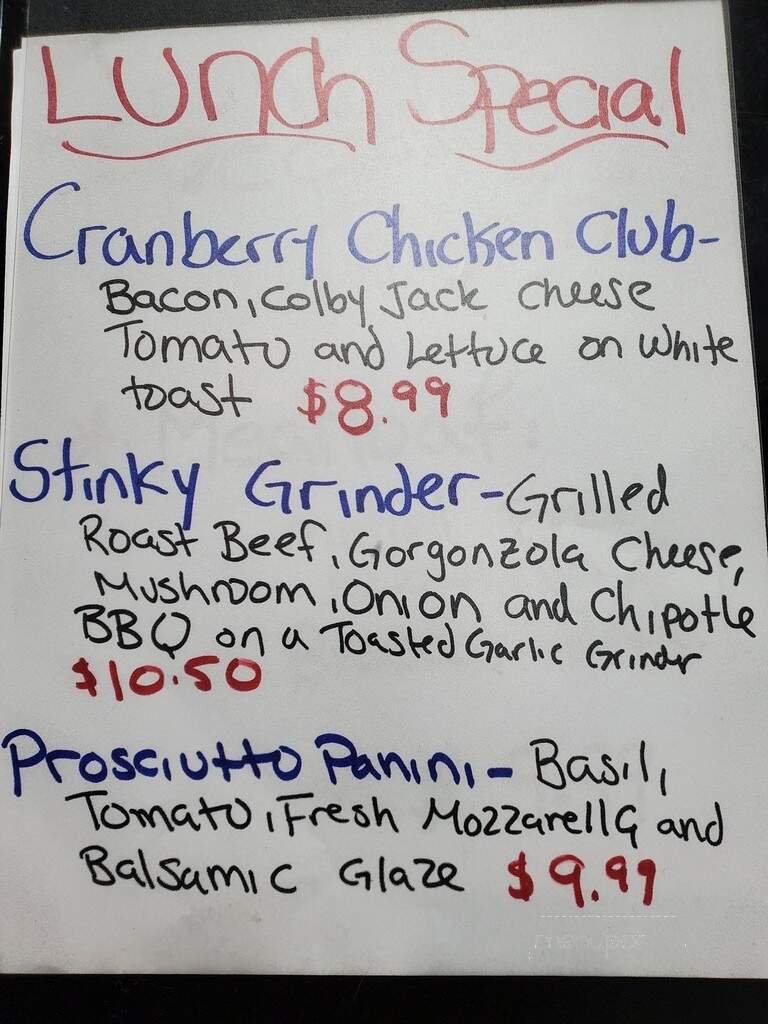 Lunch Special
Cranberry Chicken Club-
Bacon, Colby Jack cheese
Tomato and Lettuce on White
toast $8.99
Stinky Grinder-Grilled
Roast Beef, Gorgonzola Cheese,
Mushroom, Onion and Chipotle
BBQ on a Toasted Garlic Grinder
$10.50
Prosciutto Panini- Basil,
Tomato, Fresh Mozzarella and
Balsamic Glaze $9.99
menupix